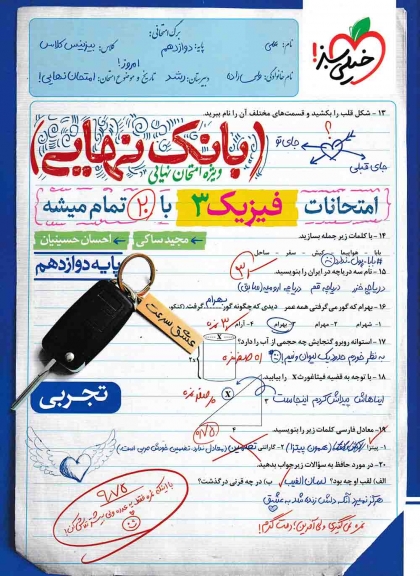 برگ امتحانی:
نام: علی
پایه: دوازدهم
کلاس: بیزینس کلاس
امروز!
نام خانوادگی:
دبیرستان: رشد
تاریخ و موضوع امتحان: امتحان نهایی!
خیلی سبز
۱۳ - شکل قلب را بکشید و قسمت‌های مختلف آن را نام ببرید.
؟
جای تو
جای قبلی
(بانک نهایی)
ویژه امتحان نهایی
امتحانات فیزیک ۳ با ۲۰ تمام میشه
مجید ساکی
احسان حسینیان
پایه دوازدهم
۱۴ - با کلمات زیر جمله بسازید.
بابا - هواپیما - سرکیش - سفر - ساحل
#بابا_پول_نداره
۱۵ - نام سه دریاچه در ایران را بنویسید.
دریاچه خزر دریاچه قم دریاچه ارومیه (سابق)
۱۶ - بهرام که گور می‌گرفتی همه عمر دیدی که چگونه گور ........ گرفت. (کنکور
بهرام
۱- شهرام ۲- مهرام ۳- بهرام ۴- آرام
۱۷ - استوانه روبرو گنجایش چه حجمی از آب را دارد؟
به نظر خودم حدود یک لیوان و نیم!
X
۱۸ - با توجه به قضیه فیثاغورث X را بیابید.
ایناهاش پیداش کردم اینجاست
X
۱۹ - معادل فارسی کلمات زیر را بنویسید.
۱- پیتزا (همون پیتزا) ۲- گارانتی
۲۰ - در مورد حافظ به سؤالات زیر جواب بدهید.
الف) لقب او چه بود؟ لسان الغیب ب) در چه قرنی درگذشت؟
هرگز نمیرد آنکه دلش زنده شد به عشق
عشق سرعت
تجربی
۹/۷۵